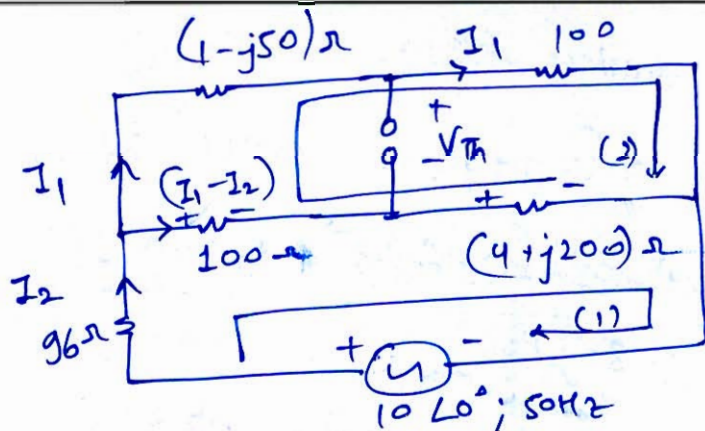 (1-j50)Ω
I1
100
+
-
VTh
(2)
I1
(I1-I2)
+
-
100Ω
+
-
(4+j200)Ω
I2
96Ω
(1)
+
-
10∠0°; 50HZ